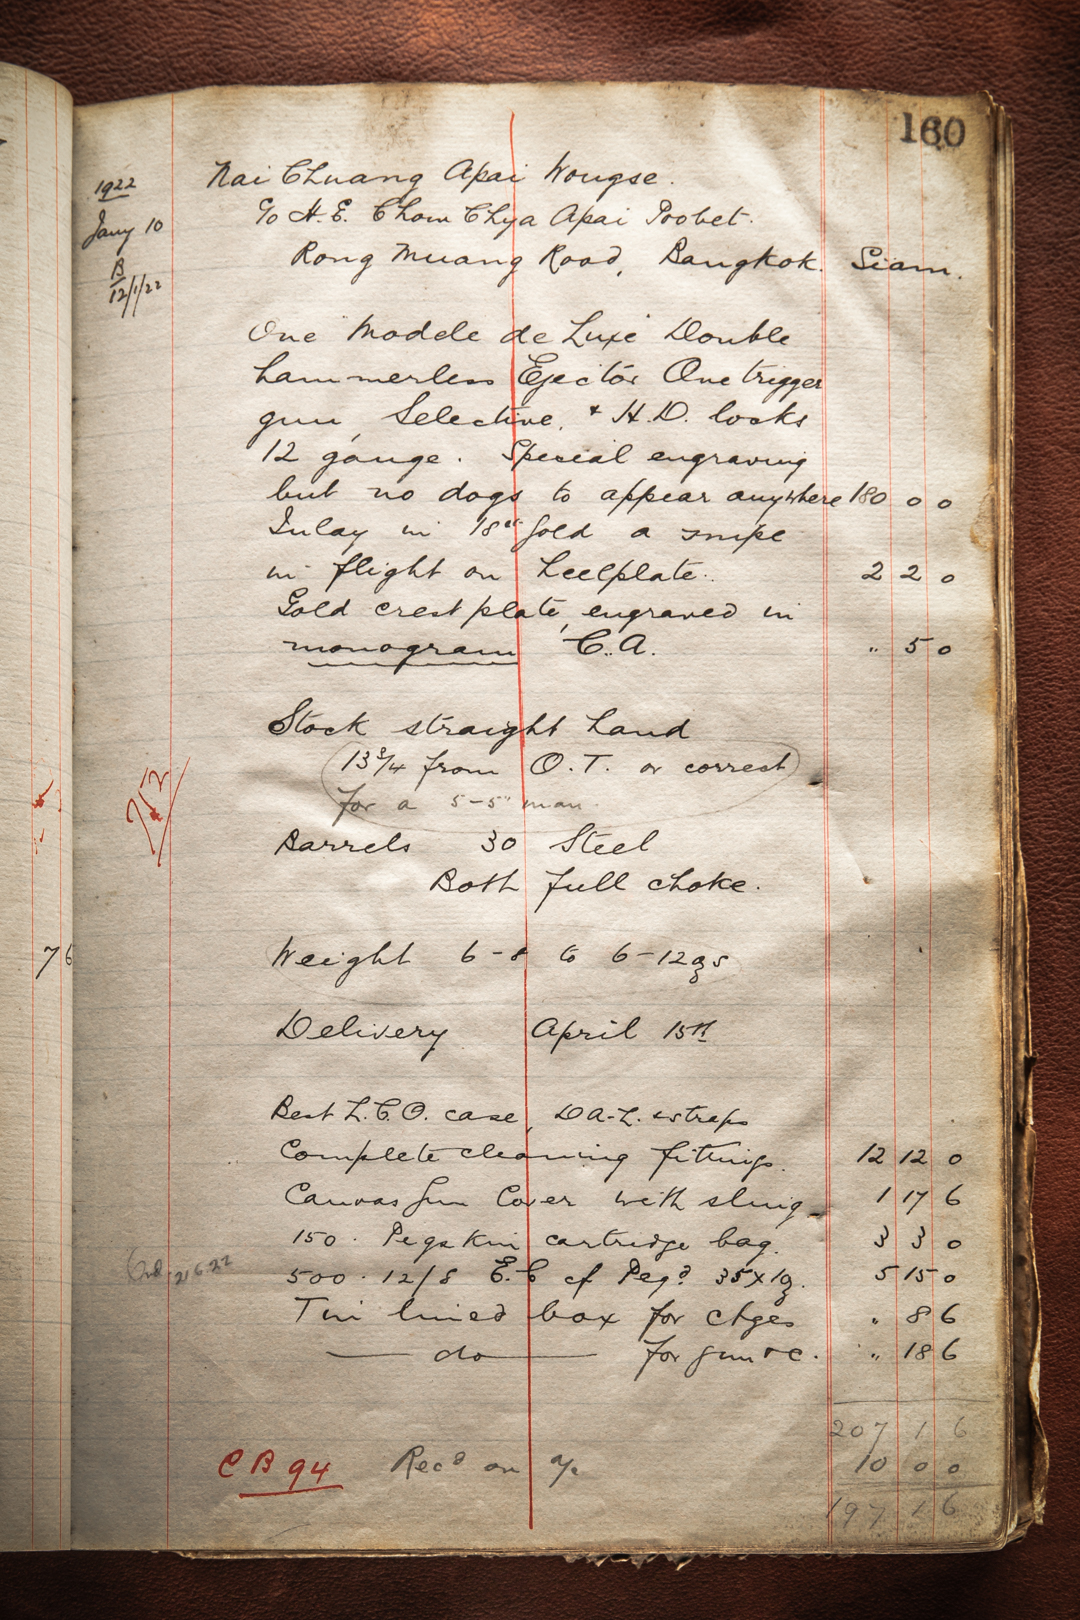 160
1922
Jany 10
B
12/1/22
Nai Chuang Apai Wongse.
c/o H.E. Chow Chya Apai Poobet.
Rong Muang Road, Bangkok. Siam.
One "Modele de Luxe" Double
hammerless Ejector One trigger
gun, Selective, & H.D. locks
12 gauge. Special engraving
but no dogs to appear anywhere 180 0 0
Inlay in 18ct Gold a snipe
in flight on heelplate. 2 2 0
Gold crest plate, engraved in
monogram C.A. " 5 0
Stock straight hand
13 3/4 from O.T. or correct
for a 5-5" man.
213
Barrels 30 Steel
Both full choke.
76
Weight 6-8 to 6-12ozs
Delivery April 15th
Best L.C.O. case, D A-L. & straps
Complete cleaning fittings. 12 12 0
Canvas Gun Cover with sling 1 17 6
150. Pegskin cartridge bag. 3 3 0
500. 12/8 E.C cf Pegd 35x1oz. 5 15 0
21.6.22
Tin lined box for ctges " 8 6
— do — for gun &c. " 18 6
207 1 6
CB 94 Recd on a/c 10 0 0
197 1 6